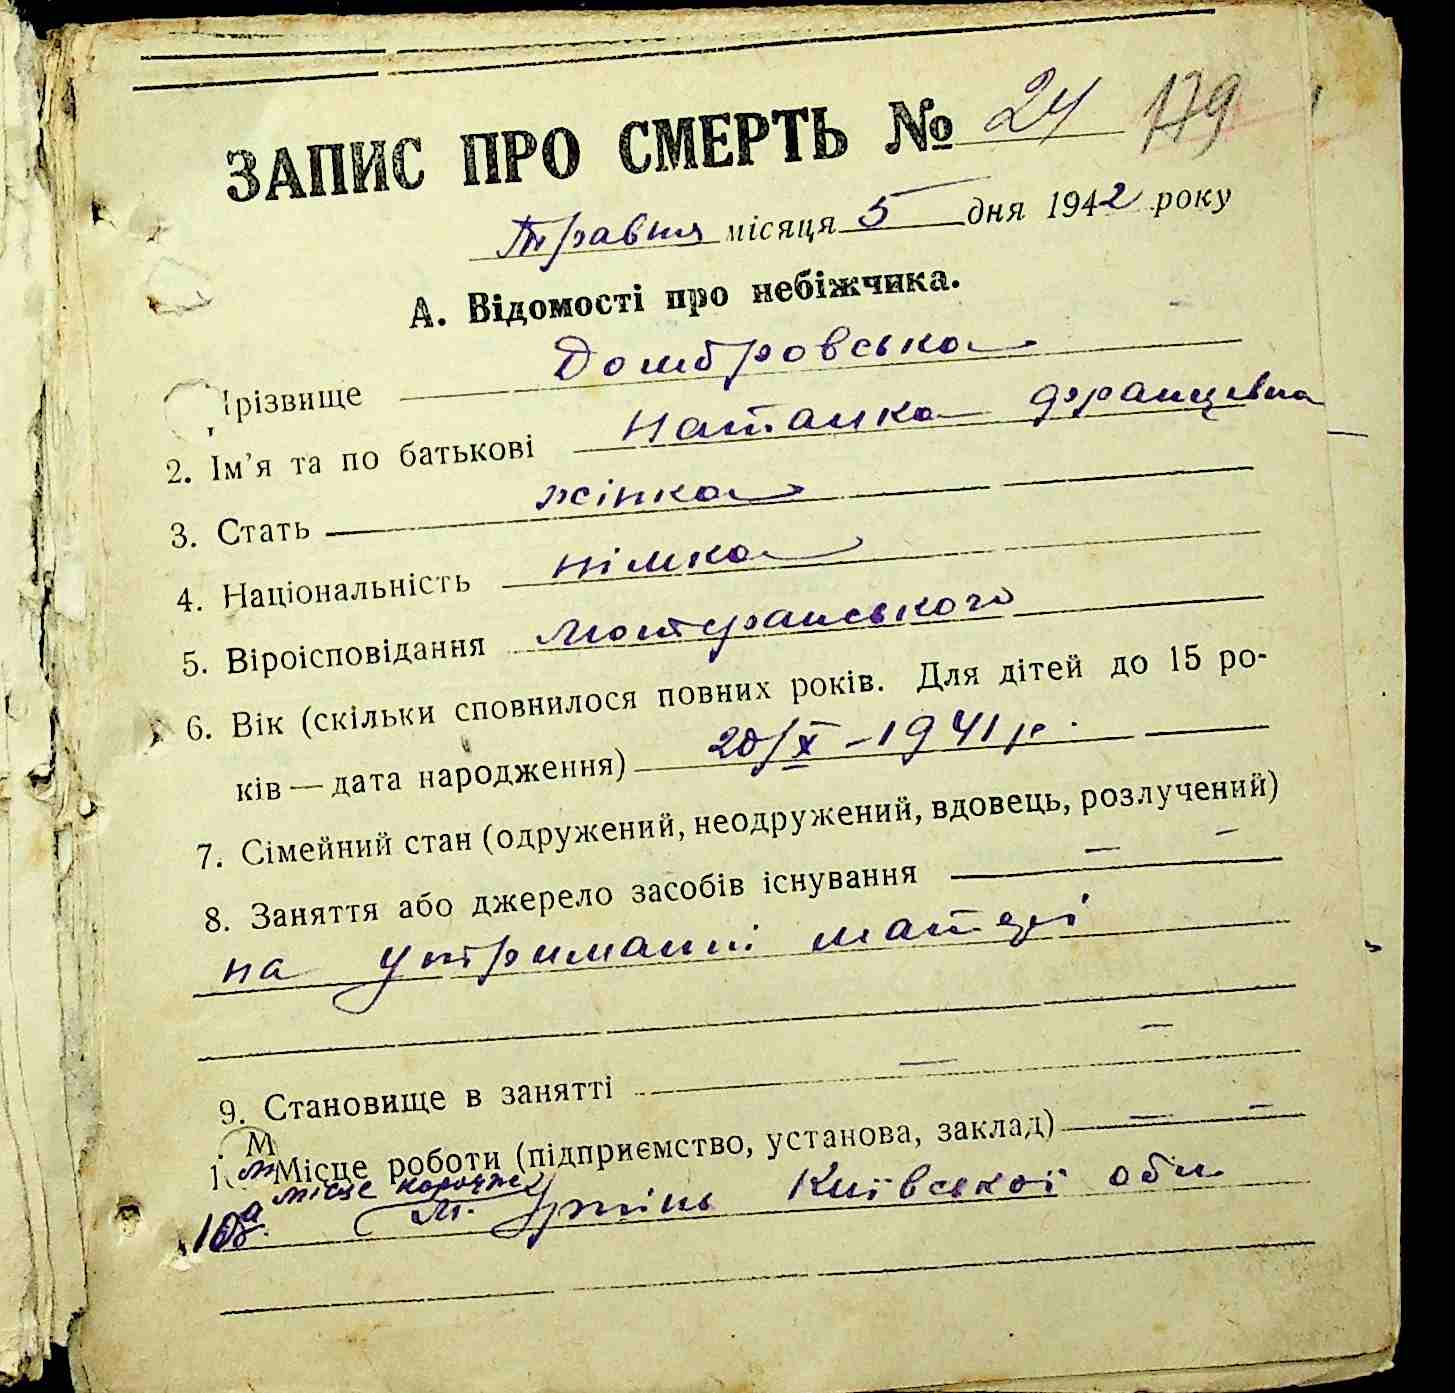 ЗАПИС ПРО СМЕРТЬ № 24 179
Травня місяця 5 дня 1942 року
А. Відомості про небіжчика.
різвище Домбровська
2. Ім'я та по батькові Наталка Францевна
3. Стать жінка
4. Національність німка
5. Віроісповідання Лютеранського
6. Вік (скільки сповнилося повних років. Для дітей до 15 ро-
ків — дата народження) 20/X - 1941 р.
7. Сімейний стан (одружений, неодружений, вдовець, розлучений)
8. Заняття або джерело засобів існування —
на утриманні матері
9. Становище в занятті — —
Місце роботи (підприємство, установа, заклад) — —
10а місце народж м. Ірпінь Київської обл